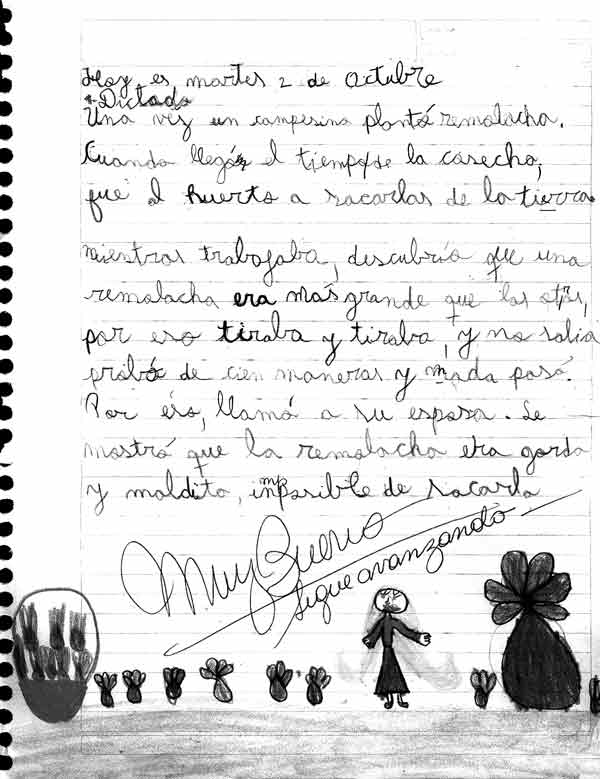 Hoy es martes 2 de Octubre
Dictado
Una vez un campesino plantó remolacha.
Cuando llegó el tiempo de la cosecha,
fue al huerto a sacarlas de la tierra.
mientras trabajaba, descubrío que una
remolacha era mas grande que las otras,
por eso tiraba y tiraba, y no salia
probó de cien maneras y nada pasó.
Por eso, llamó a su esposa. Le
mostró que la remolacha era gorda
y maldita, imposible de sacarla
Muy Bueno
sigue avanzando